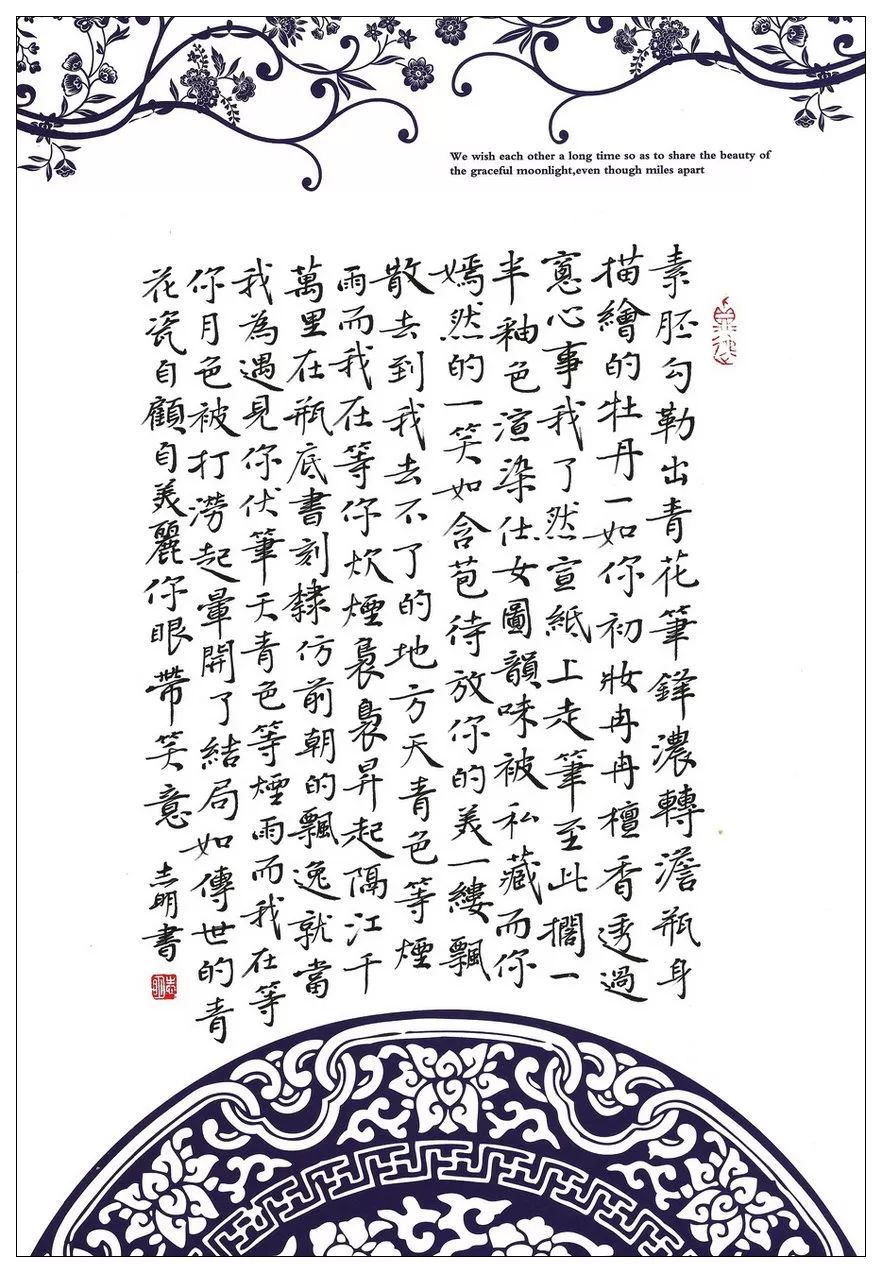 We wish each other a long time so as to share the beauty of
the graceful moonlight,even though miles apart
素胚勾勒出青花筆鋒濃轉澹瓶身
描繪的牡丹一如你初妝冉冉檀香透過
窻心事我了然宣紙上走筆至此擱一
半釉色渲染仕女圖韻味被私藏而你
嫣然的一笑如含苞待放你的美一縷飄
散去到我去不了的地方天青色等煙
雨而我在等你炊煙裊裊昇起隔江千
萬里在瓶底書刻隸仿前朝的飄逸就當
我為遇見你伏筆天青色等煙雨而我在等
你月色被打澇起暈開了結局如傳世的青
花瓷自顧自美麗你眼帶笑意
志明書